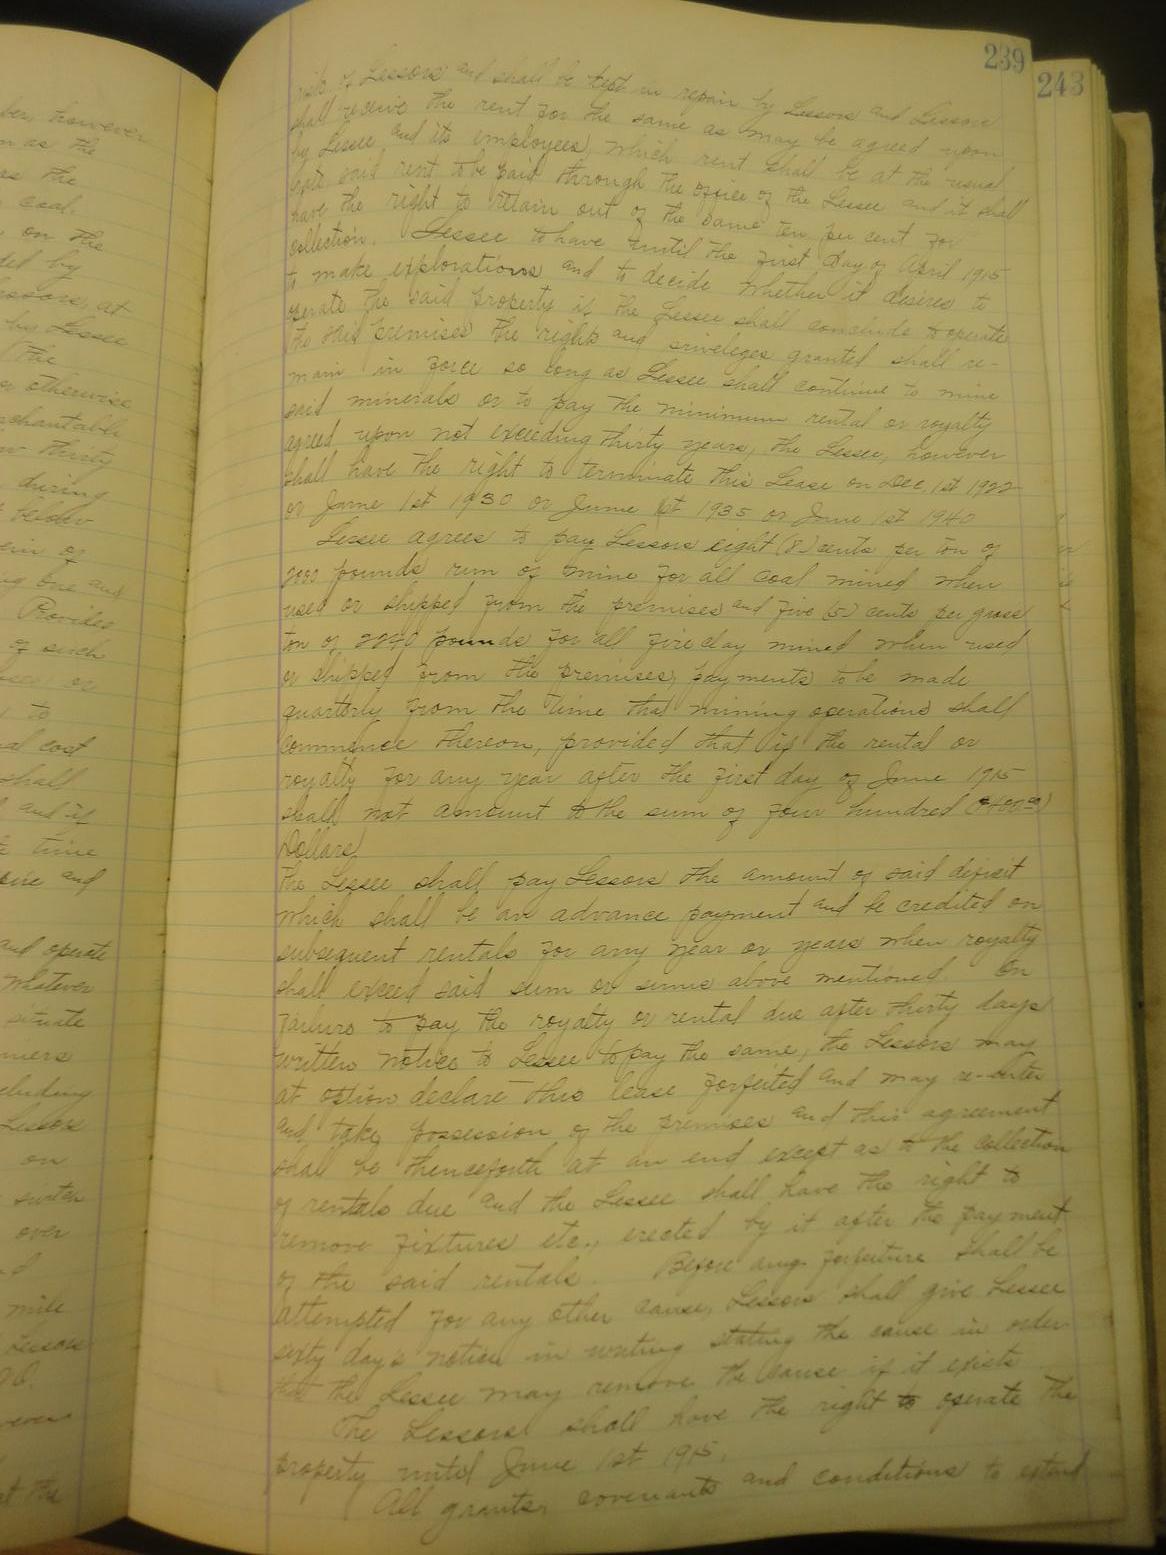 239
243
risk of Lessors and shall be kept in repair by Lessors and Lessors
shall receive the rent for the same as may be agreed upon
by Lessee and its employees, which rent shall be at the usual
rate said rent to be paid through the office of the Lessee and it shall
have the right to retain out of the same ten per cent for
collection. Lessee to have until the first Day of April 1915
to make explorations and to decide whether it desires to
operate the said property if the Lessee shall conclude to operate
the said premises the rights and priveleges granted shall re-
main in force so long as Lessee shall continue to mine
said minerals or to pay the minimum rental or royalty
agreed upon not exceeding thirty years, the Lessee, however
shall have the right to terminate this Lease on Dec, 1st 1922
or June 1st 1930 or June 1st 1935 or June 1st 1940
Lessee agrees to pay Lessors eight (8) cents per ton of
2000 pounds run of mine for all coal mined when
used or shipped from the premises and five (5) cents per gross
ton of 2240 pounds for all fire clay mined when used
or shipped from the premises, payments to be made
quarterly from the time that mining operations shall
commence thereon, provided that if the rental or
royalty for any year after the first day of June 1915
shall not amount to the sum of four hundred ($400.00)
Dollars
the Lessee shall pay Lessors the amount of said deficit
which shall be an advance payment and be credited on
subsequent rentals for any year or years when royalty
shall exceed said sum or sums above mentioned. On
failure to pay the royalty or rental due after thirty days
written notice to Lessee to pay the same, the Lessors may
at option declare this lease forfeited and may re-enter
and take possession of the premises and this agreement
shall be thenceforth at an end except as to the collection
of rentals due and the Lessee shall have the right to
remove fixtures etc., erected by it after the payment
of the said rentals. Before any forfeiture shall be
attempted for any other cause, Lessors shall give Lessee
sixty days notice in writing stating the cause in order
that the Lessee may remove the cause if it exists
The Lessors shall have the right to operate the
property until June 1st 1915.
All grants, covenants and conditions to extend